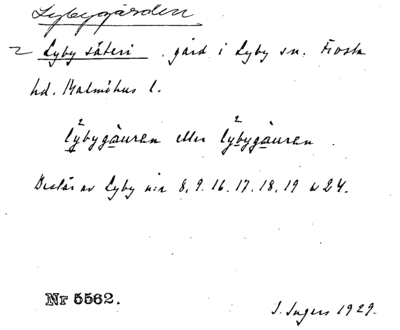 Lybygården
2 Lyby säteri . gård i Lyby sn. Frosta
hd. Malmöhus l.
2 2
lybygåuren eller lybygåuren
Består av Lyby n:r 8, 9. 16. 17. 18. 19 o 24.
Nr 5562.
J. Ingers 1929.